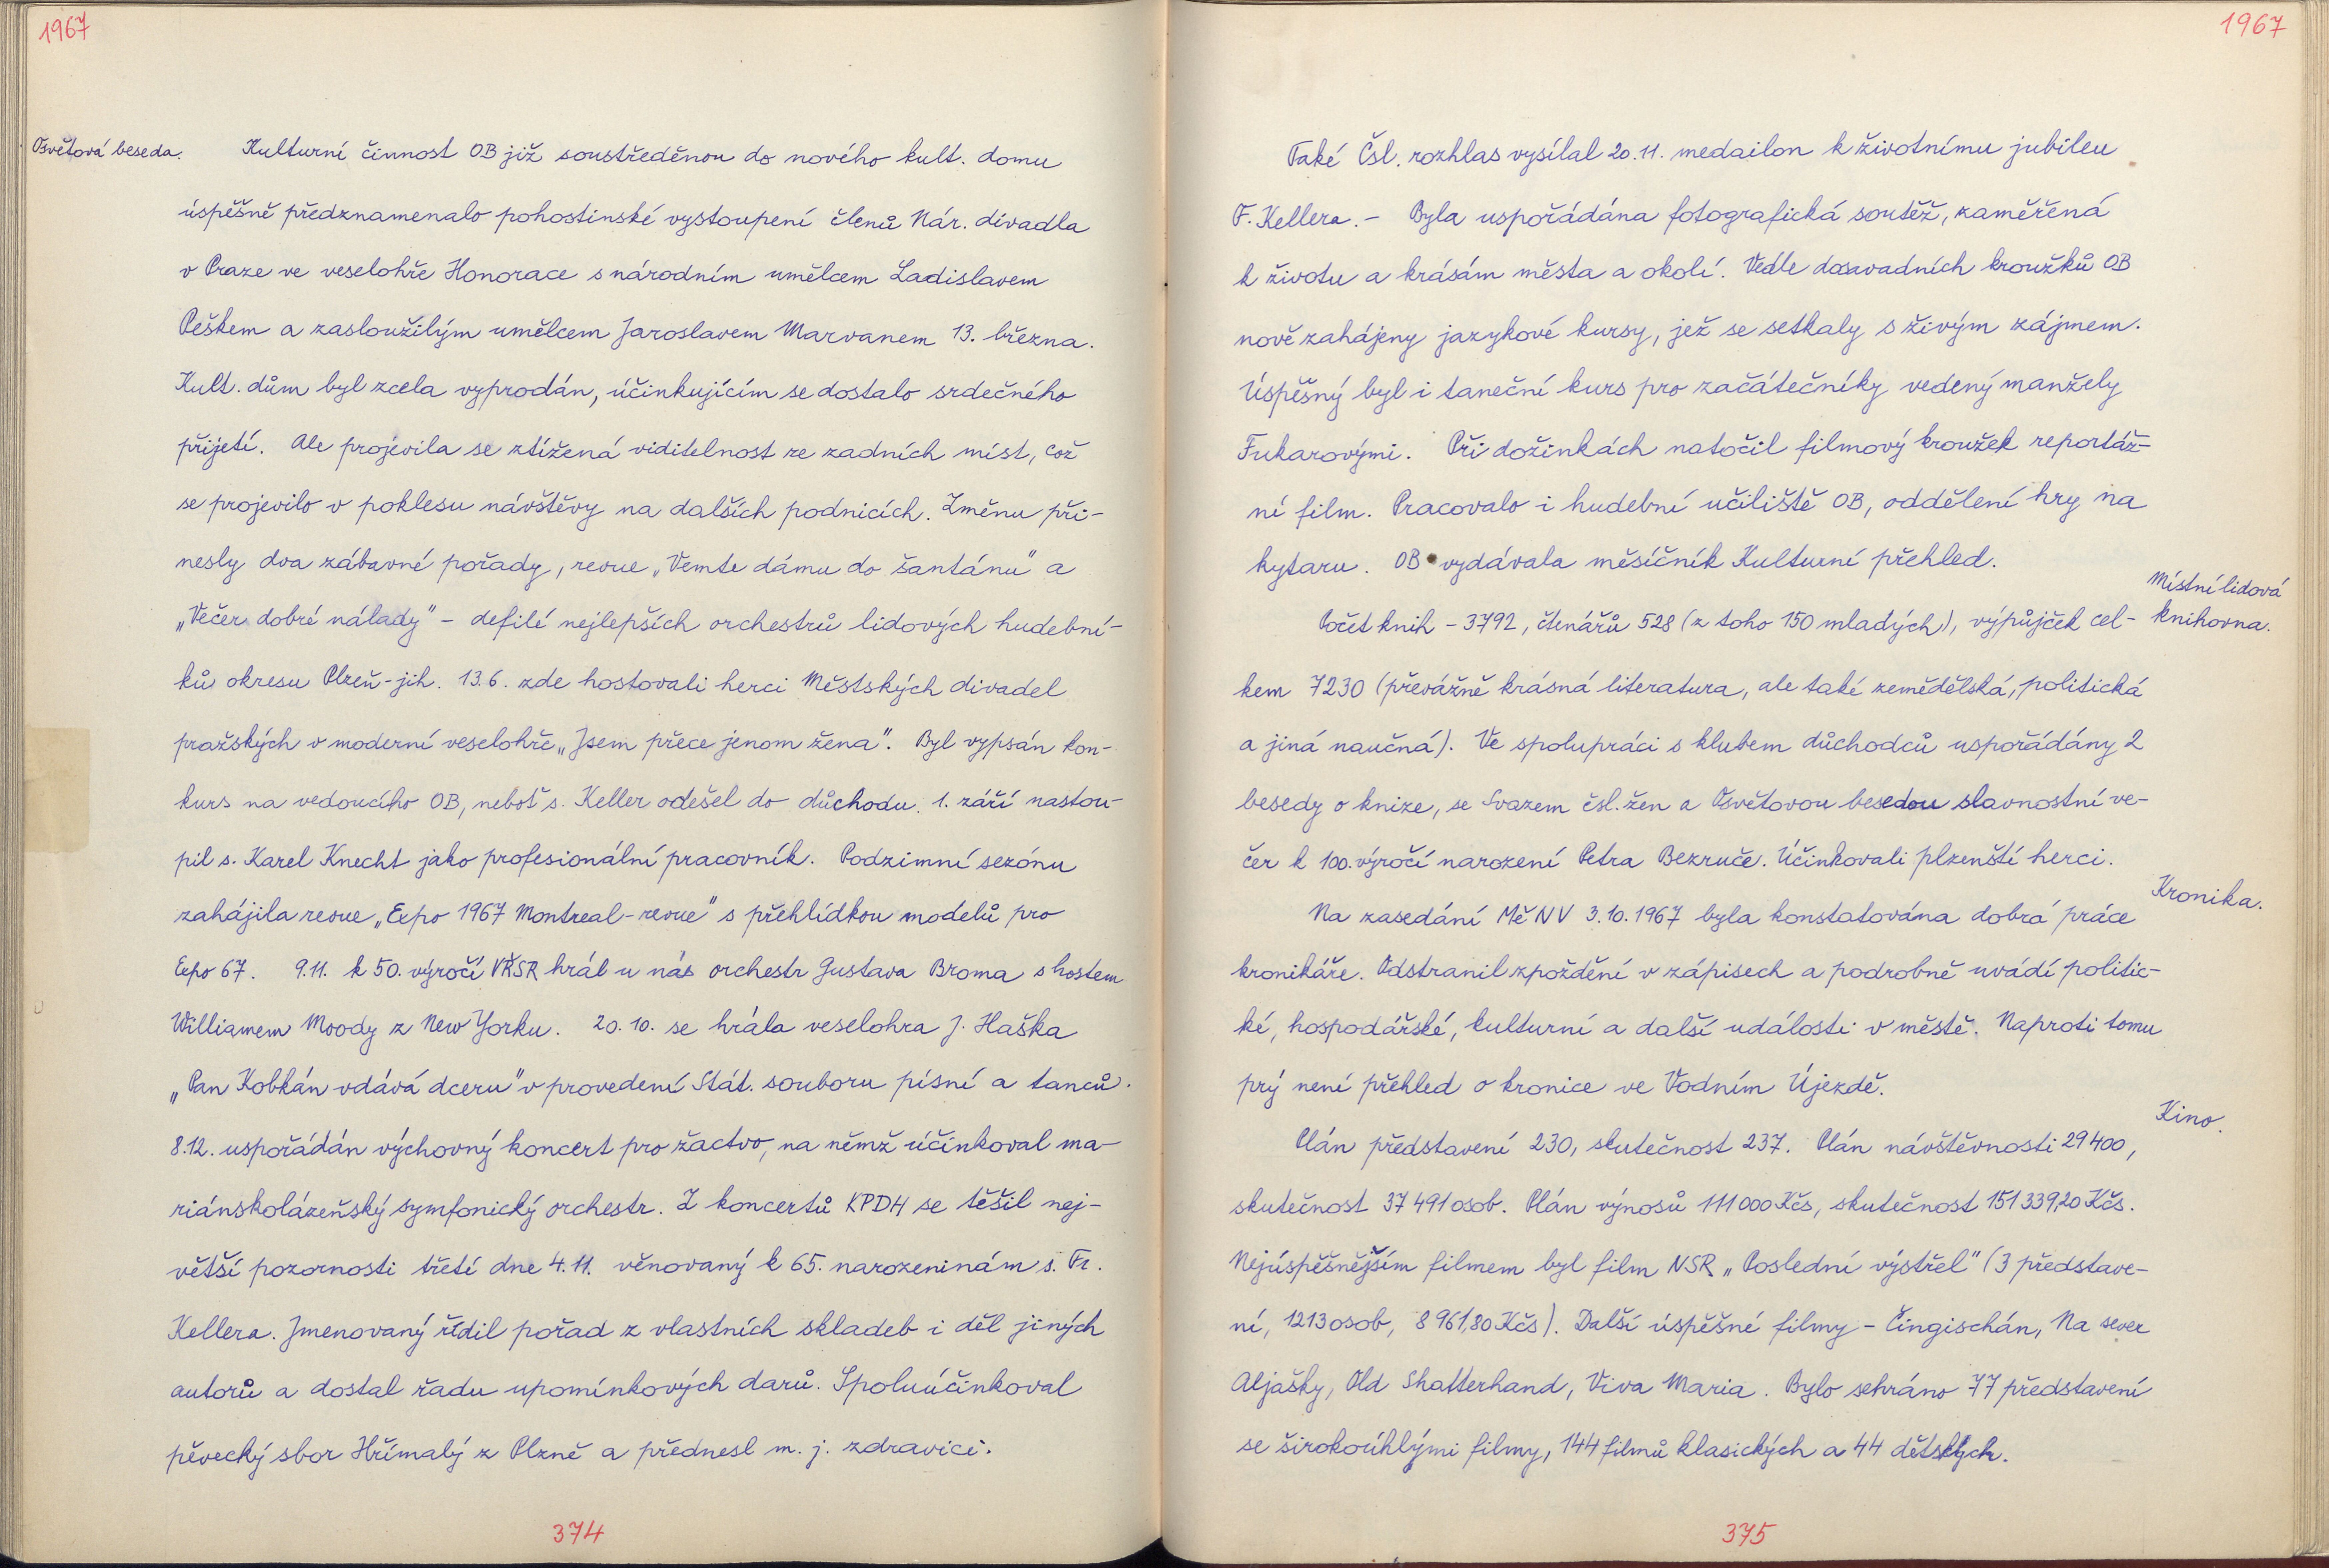 1967
Osvětová beseda.
Kulturní činnost OB již soustředěnou do nového kult. domu
úspěšně předznamenalo pohostinské vystoupení členů Nár. divadla
v Praze ve veselohře Honorace s národním umělcem Ladislavem
Peškem a zasloužilým umělcem Jaroslavem Marvanem 13. března.
Kult. dům byl zcela vyprodán, účinkujícím se dostalo srdečného
přijetí. Ale projevila se ztížená viditelnost ze zadních míst, což
se projevilo v poklesu návštěvy na dalších podnicích. Změnu při-
nesly dva zábavné pořady, revue „Vemte dámu do šantánu" a
„Večer dobré nálady" - defilé nejlepších orchestrů lidových hudební-
ků okresu Plzeň-jih. 13.6. zde hostovali herci Městských divadel
pražských v moderní veselohře „Jsem přece jenom žena". Byl vypsán kon-
kurs na vedoucího OB, neboť s. Keller odešel do důchodu. 1. září nastou-
pil s. Karel Knecht jako profesionální pracovník. Podzimní sezónu
zahájila revue „Expo 1967 Montreal-revue" s přehlídkou modelů pro
Expo 67. 9.11. k 50. výročí VŘSR hrál u nás orchestr Gustava Broma s hostem
Williamem Moody z New Yorku. 20.10. se hrála veselohra J. Haška
„Pan Kobkán vdává dceru" v provedení Stát. souboru písní a tanců.
8.12. uspořádán výchovný koncert pro žactvo, na němž účinkoval ma-
riánskolázeňský symfonický orchestr. Z koncertů KPDH se těšil nej-
větší pozornosti třetí dne 4.11. věnovaný k 65. narozeninám s. Fr.
Kellera. Jmenovaný řídil pořad z vlastních skladeb i děl jiných
autorů a dostal řadu upomínkových darů. Spoluúčinkoval
pěvecký sbor Hřímalý z Plzně a přednesl m. j. zdravici.
374
1967
Také Čsl. rozhlas vysílal 20.11. medailon k životnímu jubileu
F. Kellera. - Byla uspořádána fotografická soutěž, zaměřená
k životu a krásám města a okolí. Vedle dosavadních kroužků OB
nově zahájeny jazykové kursy, jež se setkaly s živým zájmem.
Úspěšný byl i taneční kurs pro začátečníky vedený manžely
Fukarovými. Při dožinkách natočil filmový kroužek reportáž-
ní film. Pracovalo i hudební učiliště OB, oddělení hry na
kytaru. OB vydávala měsíčník Kulturní přehled.
Místní lidová
knihovna.
Počet knih - 3792, čtenářů 528 (z toho 150 mladých), výpůjček cel-
kem 7230 (převážně krásná literatura, ale také zemědělská, politická
a jiná naučná). Ve spolupráci s klubem důchodců uspořádány 2
besedy o knize, se Svazem čsl. žen a Osvětovou besedou slavnostní ve-
čer k 100. výročí narození Petra Bezruče. Účinkovali plzenští herci.
Kronika.
Na zasedání MěNV 3.10.1967 byla konstatována dobrá práce
kronikáře. Odstranil zpoždění v zápisech a podrobně uvádí politic-
ké, hospodářské, kulturní a další události v městě. Naproti tomu
prý není přehled o kronice ve Vodním Újezdě.
Kino.
Plán představení 230, skutečnost 237. Plán návštěvnosti 29400,
skutečnost 37491 osob. Plán výnosů 111000 Kčs, skutečnost 151339,20 Kčs.
Nejúspěšnějším filmem byl film NSR „Poslední výstřel" (3 představe-
ní, 1213 osob, 8961,80 Kčs). Další úspěšné filmy - Čingischán, Na sever
Aljašky, Old Shatterhand, Viva Maria. Bylo sehráno 77 představení
se širokoúhlými filmy, 144 filmů klasických a 44 dětských.
375